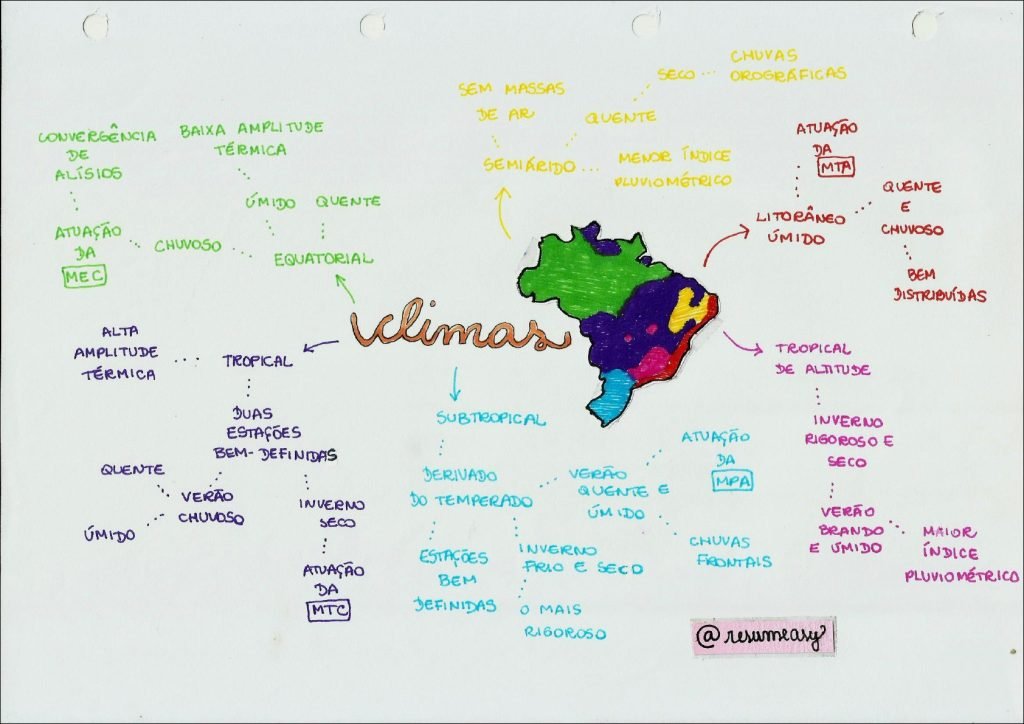 climas
CONVERGÊNCIA
DE
ALÍSIOS
BAIXA AMPLITUDE
TÉRMICA
ATUAÇÃO
DA
MEC
CHUVOSO
ÚMIDO
QUENTE
EQUATORIAL
SEM MASSAS
DE AR
SEMIÁRIDO
QUENTE
SECO
CHUVAS
OROGRÁFICAS
MENOR ÍNDICE
PLUVIOMÉTRICO
ATUAÇÃO
DA
MTA
LITORÂNEO
ÚMIDO
QUENTE
E
CHUVOSO
BEM
DISTRIBUÍDAS
ALTA
AMPLITUDE
TÉRMICA
TROPICAL
DUAS
ESTAÇÕES
BEM-DEFINIDAS
QUENTE
ÚMIDO
VERÃO
CHUVOSO
INVERNO
SECO
ATUAÇÃO
DA
MTC
SUBTROPICAL
DERIVADO
DO TEMPERADO
ESTAÇÕES
BEM
DEFINIDAS
INVERNO
FRIO E SECO
O MAIS
RIGOROSO
VERÃO
QUENTE E
ÚMIDO
ATUAÇÃO
DA
MPA
CHUVAS
FRONTAIS
TROPICAL
DE ALTITUDE
INVERNO
RIGOROSO E
SECO
VERÃO
BRANDO
E ÚMIDO
MAIOR
ÍNDICE
PLUVIOMÉTRICO
@resumeasy